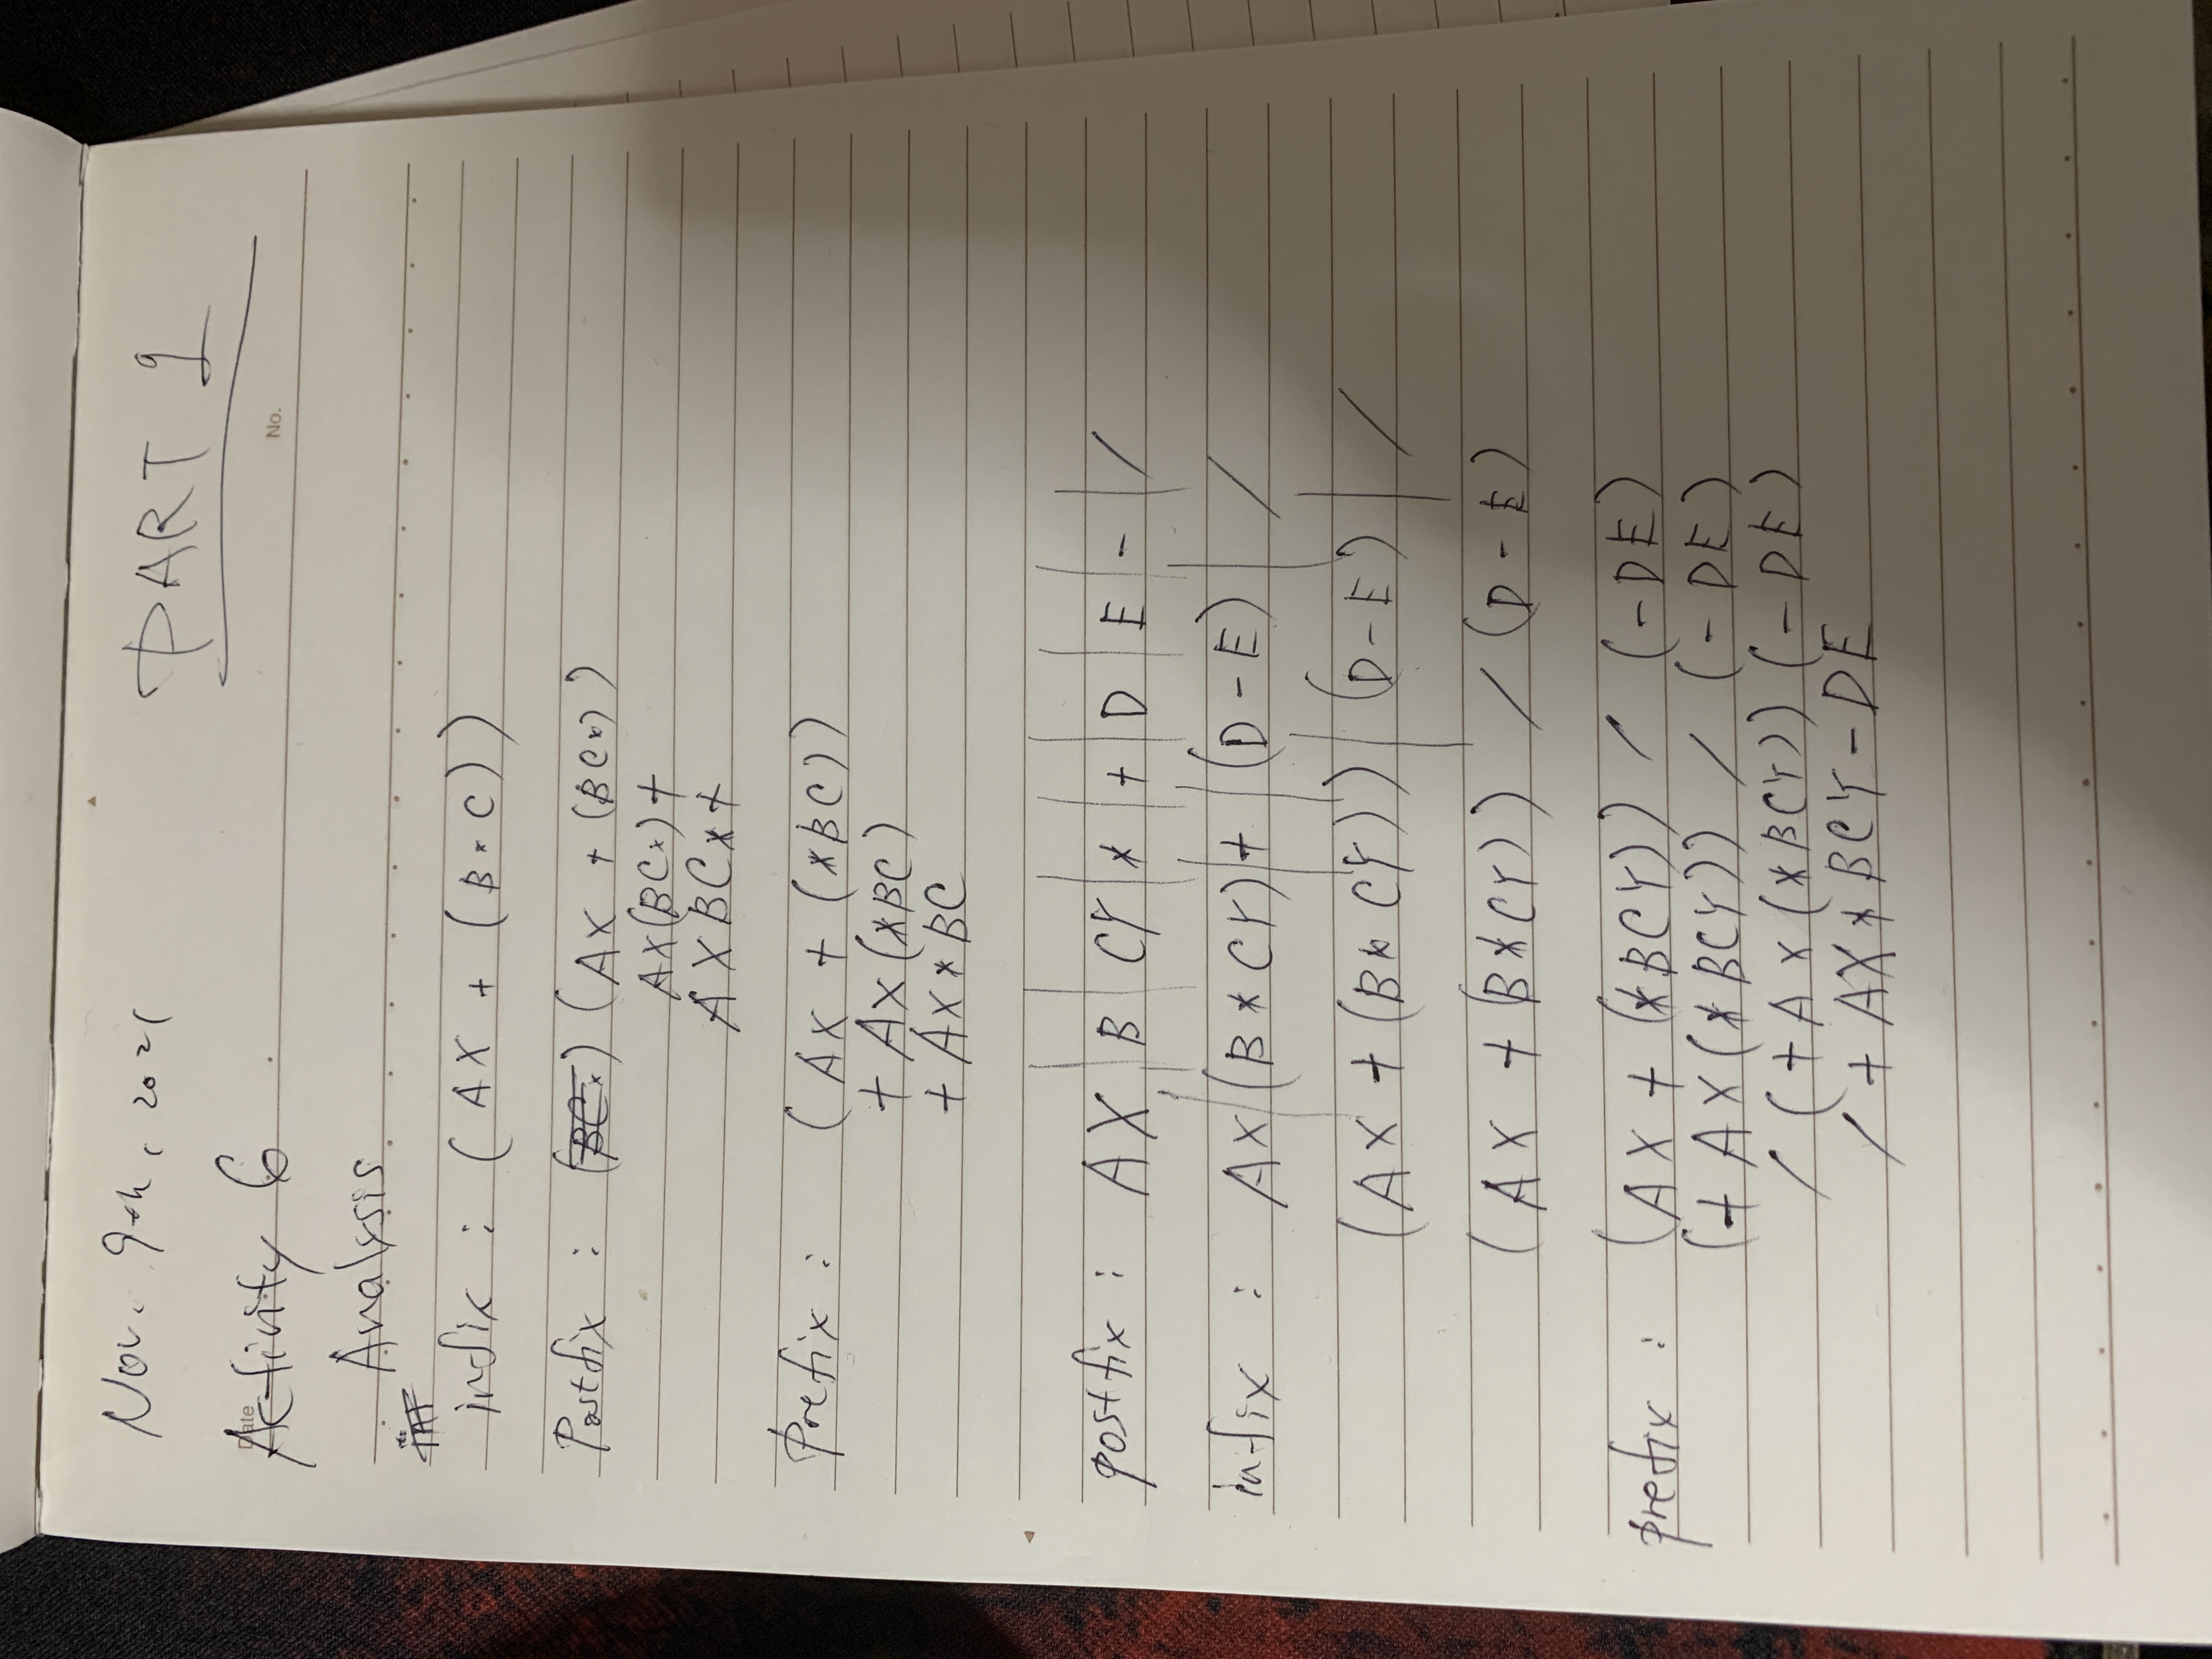 Nov. 9th, 2021
PART 1
Date
No.
Activity 6
Analysis
infix : (AX + (B * C))
Postfix : (BC*) (AX + (BC*))
AX(BC*)+
AXBC*+
Prefix : (AX + (*BC))
+ AX(*BC)
+ AX*BC
postfix : AX | B | CY | * | + | D | E | - | /
infix : AX | (B * CY) | + | (D - E) | /
(AX + (B * CY)) | (D - E) | /
(AX + (B*CY)) / (D - E)
prefix : (AX + (*BCY)) / (-DE)
(+ AX(*BCY)) / (-DE)
/ (+AX(*BCY)) (-DE)
/ + AX*BCY-DE